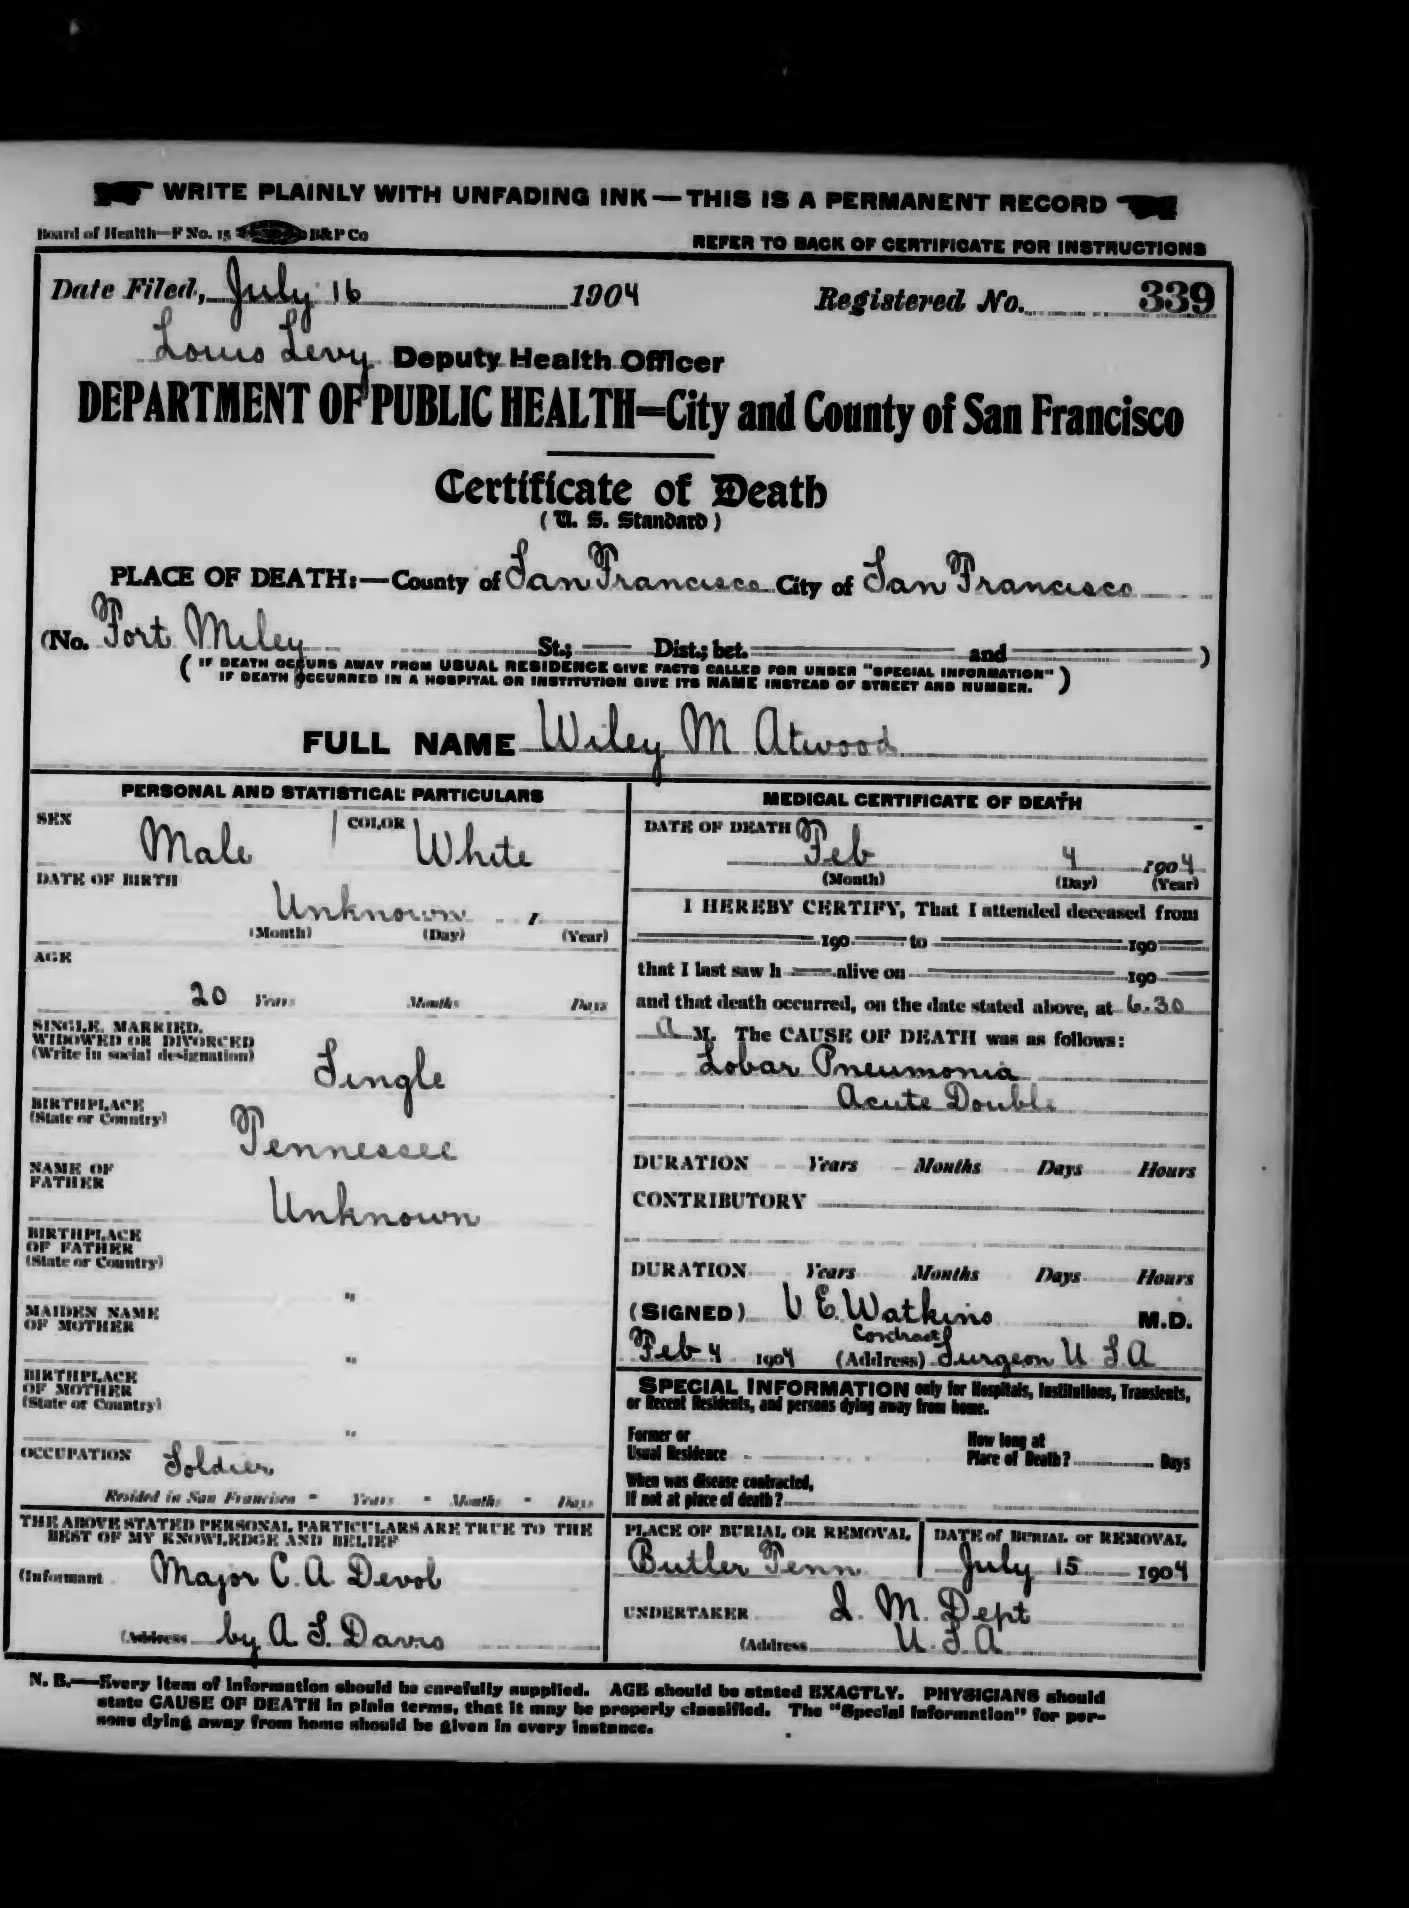 WRITE PLAINLY WITH UNFADING INK—THIS IS A PERMANENT RECORD
Board of Health—F No. 15 B&P Co
REFER TO BACK OF CERTIFICATE FOR INSTRUCTIONS
Date Filed, July 16 1904 Registered No. 339
Louis Levy Deputy Health Officer
DEPARTMENT OF PUBLIC HEALTH—City and County of San Francisco
Certificate of Death
(U. S. Standard)
PLACE OF DEATH:—County of San Francisco City of San Francisco
(No. Fort Miley St.; Dist.; bet. and )
(IF DEATH OCCURS AWAY FROM USUAL RESIDENCE GIVE FACTS CALLED FOR UNDER "SPECIAL INFORMATION"
IF DEATH OCCURRED IN A HOSPITAL OR INSTITUTION GIVE ITS NAME INSTEAD OF STREET AND NUMBER.)
FULL NAME Wiley M Atwood
PERSONAL AND STATISTICAL PARTICULARS
SEX Male COLOR White
DATE OF BIRTH
Unknown
(Month) (Day) (Year)
AGE
20 Years Months Days
SINGLE, MARRIED,
WIDOWED OR DIVORCED
(Write in social designation)
Single
BIRTHPLACE
(State or Country)
Tennessee
NAME OF
FATHER
Unknown
BIRTHPLACE
OF FATHER
(State or Country)
"
MAIDEN NAME
OF MOTHER
"
BIRTHPLACE
OF MOTHER
(State or Country)
"
OCCUPATION Soldier
Resided in San Francisco - Years - Months - Days
THE ABOVE STATED PERSONAL PARTICULARS ARE TRUE TO THE
BEST OF MY KNOWLEDGE AND BELIEF
(Informant Major C. A. Devol
(Address by A. S. Davis
MEDICAL CERTIFICATE OF DEATH
DATE OF DEATH
Feb 4 1904
(Month) (Day) (Year)
I HEREBY CERTIFY, That I attended deceased from
190 to 190
that I last saw h alive on 190
and that death occurred, on the date stated above, at 6.30
a M. The CAUSE OF DEATH was as follows:
Lobar Pneumonia
Acute Double
DURATION Years Months Days Hours
CONTRIBUTORY
DURATION Years Months Days Hours
(SIGNED) V E. Watkins M.D.
Contract
Feb 4 1904 (Address) Surgeon U S A
SPECIAL INFORMATION only for Hospitals, Institutions, Transients,
or Recent Residents, and persons dying away from home.
Former or
Usual Residence
How long at
Place of Death? Days
When was disease contracted,
If not at place of death?
PLACE OF BURIAL OR REMOVAL
Butler Penn
DATE of BURIAL or REMOVAL
July 15 1904
UNDERTAKER Q. M. Dept
(Address U. S. A
N. B.—Every item of information should be carefully supplied. AGE should be stated EXACTLY. PHYSICIANS should
state CAUSE OF DEATH in plain terms, that it may be properly classified. The "Special Information" for per-
sons dying away from home should be given in every instance.